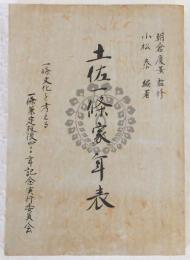 朝倉慶景 監修
小松泰 編著
土佐一條家年表
一條文化を考える
一條兼定没後四〇〇年記念実行委員会